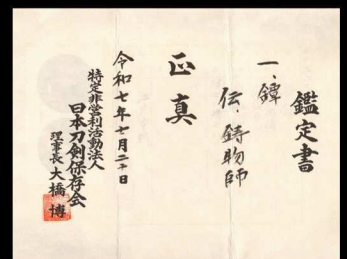 鑑定書
一、鐔
伝、鋳物師
正真
令和七年七月二十日
特定非営利活動法人
日本刀剣保存会
理事長 大橋 博